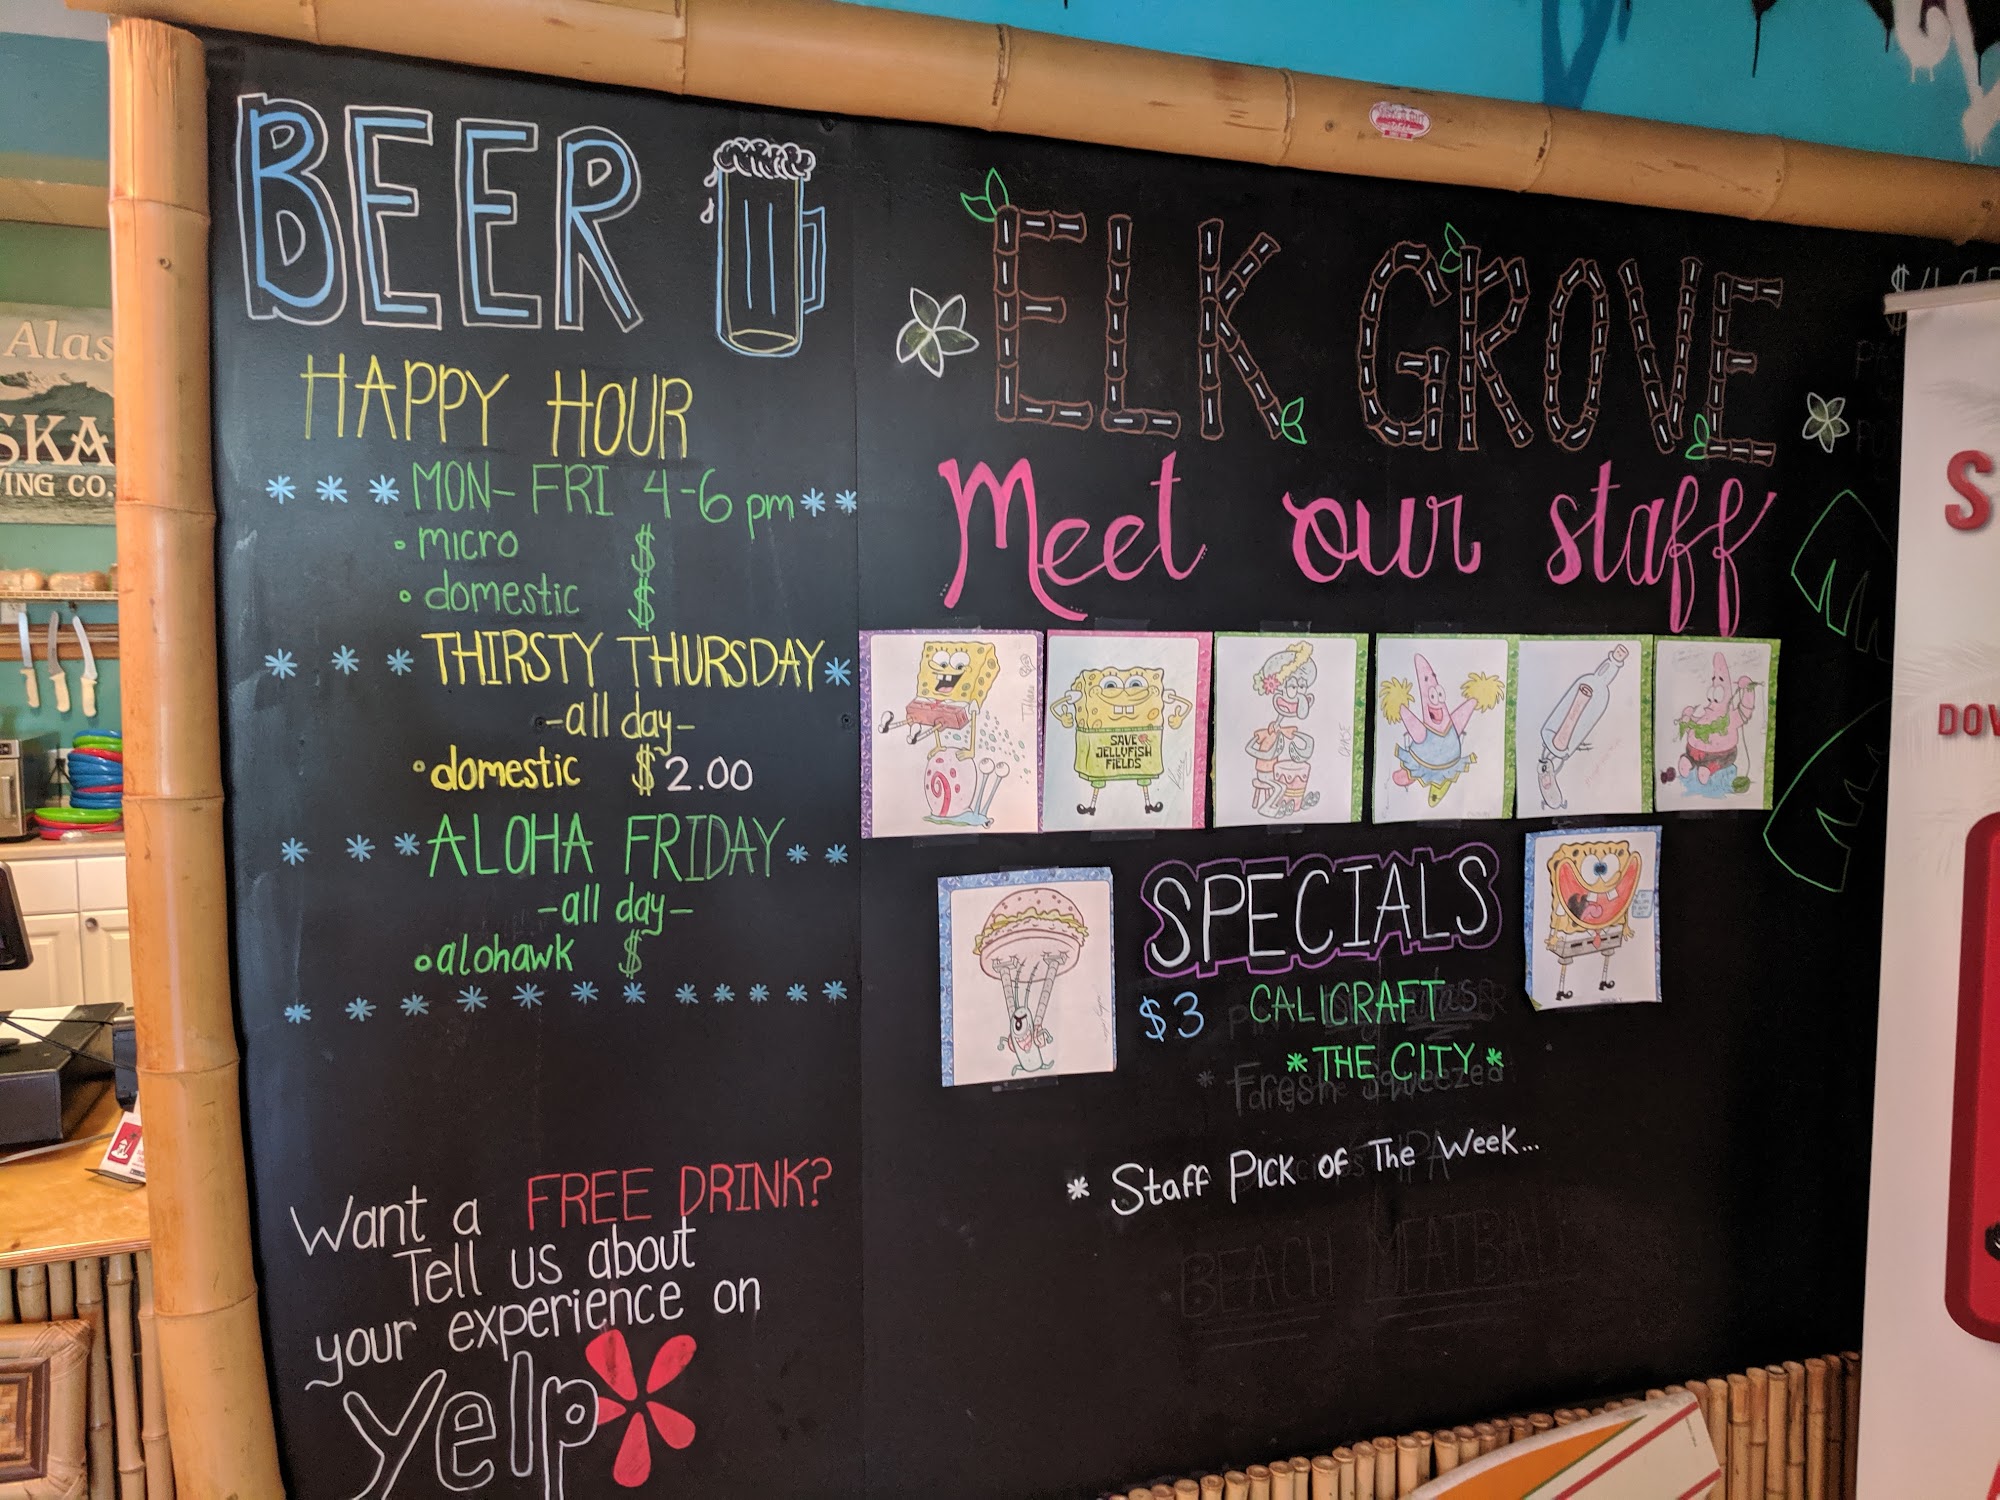 BEER
HAPPY HOUR
* * * MON-FRI 4-6 pm * *
• micro $
• domestic $
* * * THIRSTY THURSDAY *
-all day-
• domestic $2.00
* * * ALOHA FRIDAY * *
-all day-
• alohawk $
* * * * * * * * * * *
Want a FREE DRINK?
Tell us about
your experience on
yelp
ELK GROVE
Meet our staff
SAVE
JELLYFISH
FIELDS
CHASE
SPECIALS
$3 CALICRAFT
*THE CITY*
Fresh Squeezed
* Staff Pick of The Week...
BEACH MEATBALL
Alas
SKA
ING CO.
S
DOW